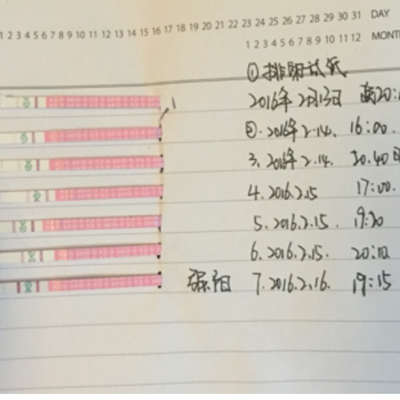 1 2 3 4 5 6 7 8 9 10 11 12 13 14 15 16 17 18 19 20 21 22 23 24 25 26 27 28 29 30 31 DAY
1 2 3 4 5 6 7 8 9 10 11 12 MONT
①排卵试纸
2016年2月13日 20:
②.2016年2.14. 16:00
3.2016年2.14. 20.40
4.2016.2.15 17:00.
5.2016.2.15. 19:20
6.2016.2.15. 20:10
强阳 7.2016.2.16. 19:15